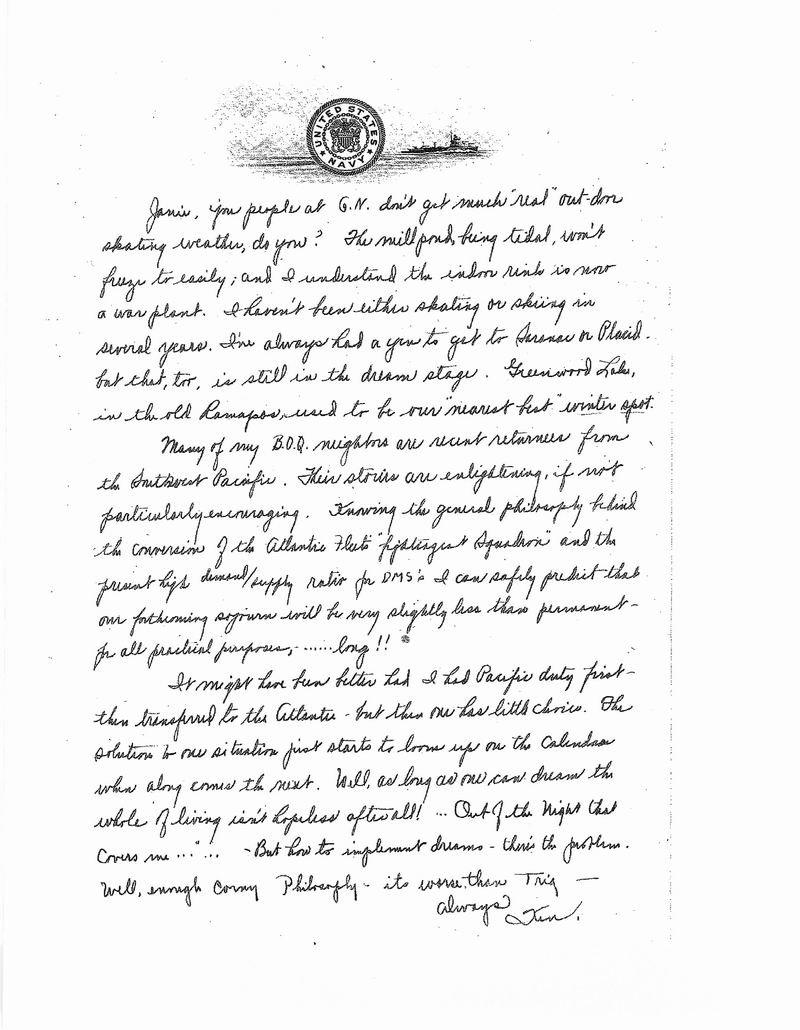 UNITED STATES
NAVY
Janie, you people at G.N. don't get much "real" out-door
skating weather, do you? The mill pond, being tidal, won't
freeze to easily; and I understand the indoor rink is now
a war plant. I haven't been either skating or skiing in
several years. I've always had a yen to get to Saranac or Placid.
but that, too, is still in the dream stage. Greenwood Lake,
in the old Ramapos, used to be our "nearest best" winter spot.
Many of my B.O.Q. neighbors are recent returnees from
the Southwest Pacific. Their stories are enlightening, if not
particularly encouraging. Knowing the general philosophy behind
the conversion of the Atlantic Fleets "fightingest Squadron" and the
present high demand/supply ratio for DMS's I can safely predict that
our forthcoming sojourn will be very slightly less than permanent -
for all practical purposes, - ...... long!!
It might have been better had I had Pacific duty first -
then transferred to the Atlantic - but then one has little choice. The
solution to one situation just starts to loom up on the Calendar
when along comes the next. Well, as long as one can dream the
whole of living isn't hopeless after all! ... Out of the Night that
Covers me ..." ... - But how to implement dreams - there's the problem.
Well, enough Corny Philosophy - its worse than Trig —
Always
Ken.